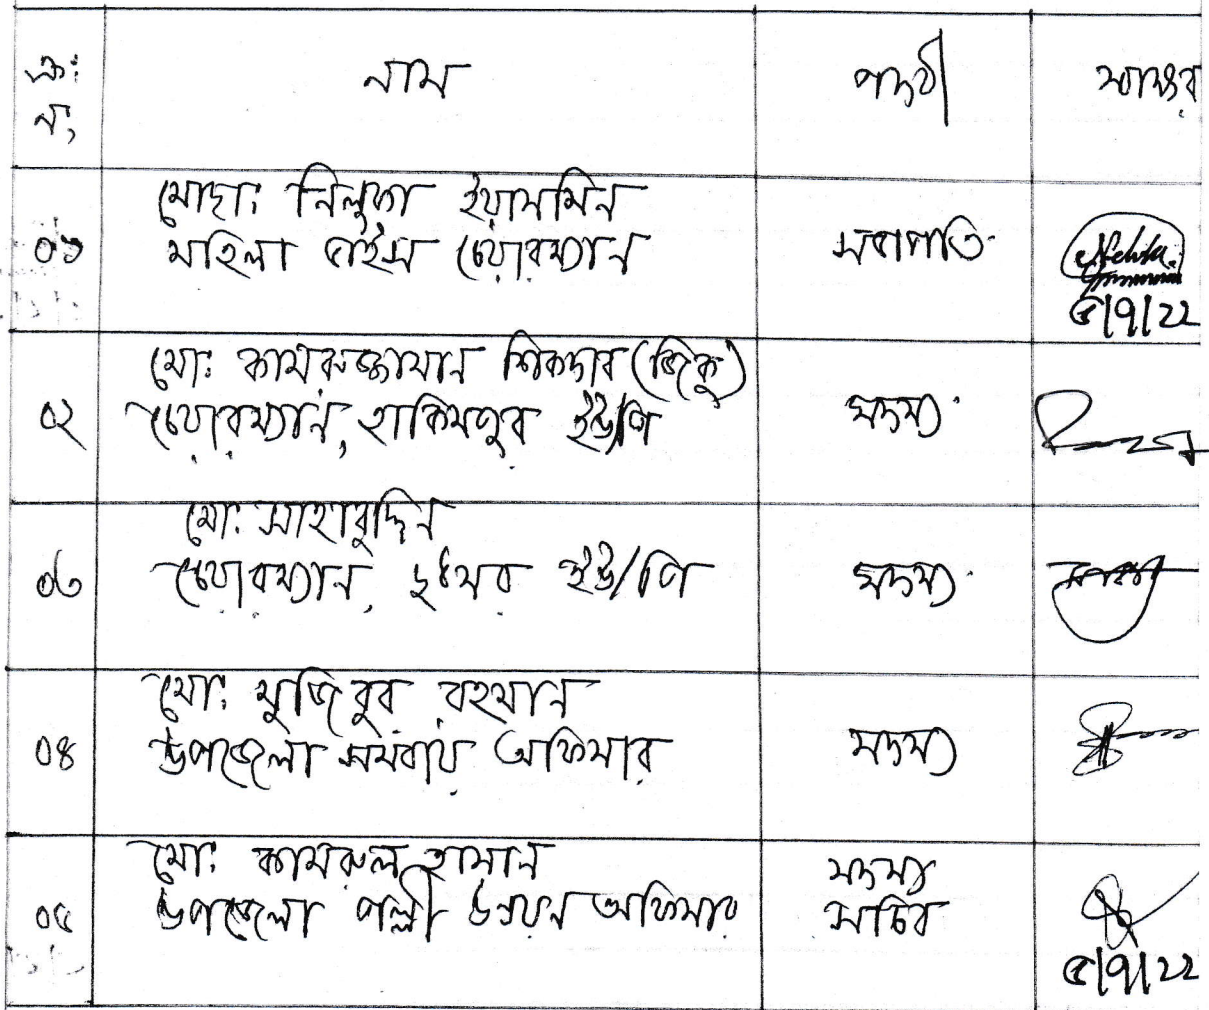 ক্রঃ নং নাম পদবী স্বাক্ষর
মোছাঃ নিলুফা ইয়াসমিন
০১ মহিলা ভাইস চেয়ারম্যান সভাপতি
৫/৭/২২
মোঃ কামরুজ্জামান শিকদার (জিকু)
০২ চেয়ারম্যান, হাকিমপুর ইউ/পি সদস্য
মোঃ সাহাবুদ্দিন
০৩ চেয়ারম্যান, ইউ/পি সদস্য
মোঃ মুজিবুর রহমান
০৪ উপজেলা সমবায় অফিসার সদস্য
মোঃ কামরুল হাসান সদস্য
০৫ উপজেলা পল্লী উন্নয়ন অফিসার সচিব
৫/৭/২২